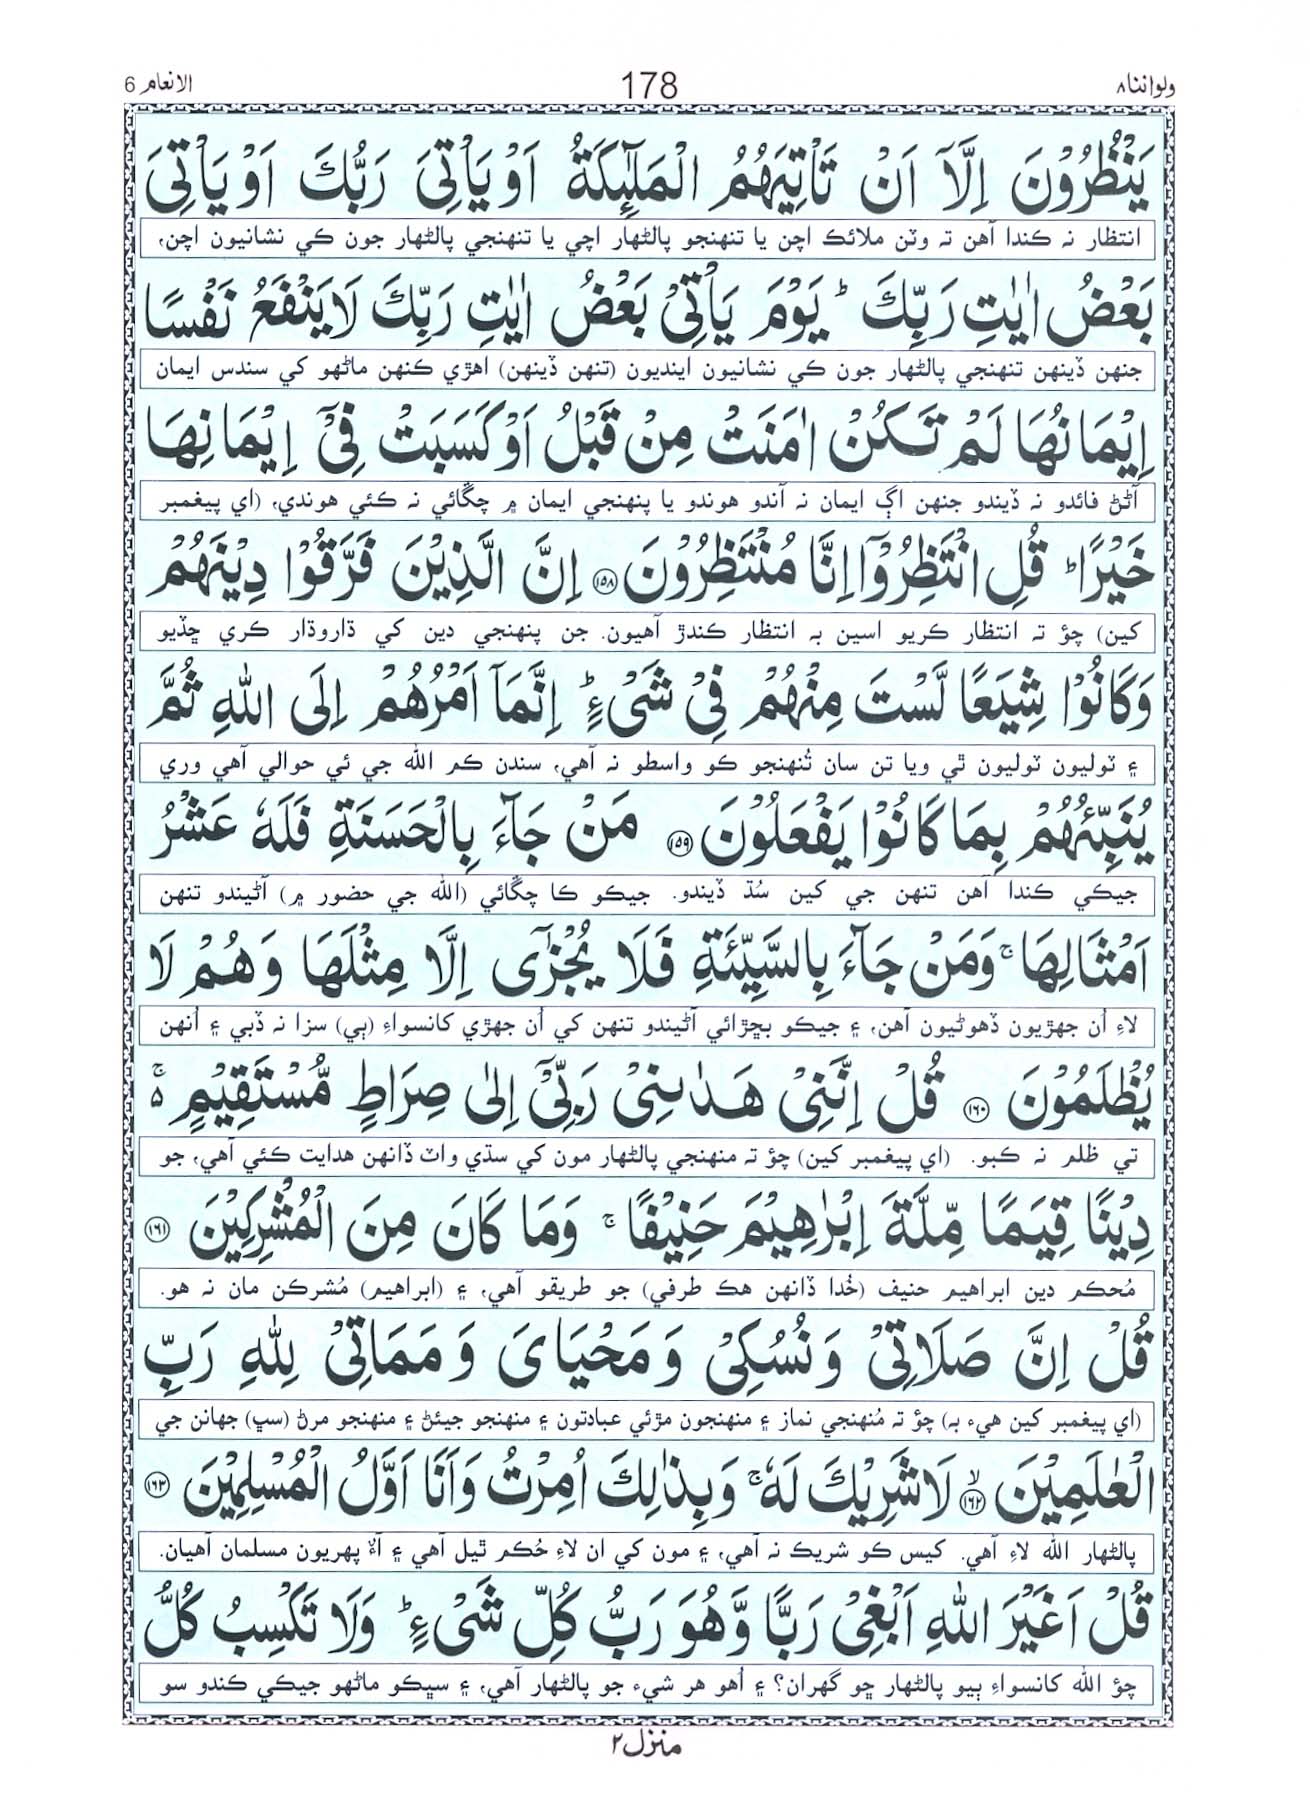 ولواننا ٨ 178 الانعام 6
يَنْظُرُوْنَ اِلَّآ اَنْ تَاْتِيَهُمُ الْمَلٰٓئِكَةُ اَوْ يَاْتِىَ رَبُّكَ اَوْ يَاْتِىَ
انتظار نہ ڪندا آهن تہ وٽن ملائڪ اچن يا تنهنجو پالڻهار اچي يا تنهنجي پالڻهار جون ڪي نشانيون اچن،
بَعْضُ اٰيٰتِ رَبِّكَ ؕ يَوْمَ يَاْتِىْ بَعْضُ اٰيٰتِ رَبِّكَ لَا يَنْفَعُ نَفْسًا
جنهن ڏينهن تنهنجي پالڻهار جون ڪي نشانيون اينديون (تنهن ڏينهن) اهڙي ڪنهن ماڻهو کي سندس ايمان
اِيْمَانُهَا لَمْ تَكُنْ اٰمَنَتْ مِنْ قَبْلُ اَوْ كَسَبَتْ فِىْٓ اِيْمَانِهَا
آڻڻ فائدو نہ ڏيندو جنهن اڳ ايمان نہ آندو هوندو يا پنهنجي ايمان ۾ چڱائي نہ ڪئي هوندي، (اي پيغمبر
خَيْرًا ؕ قُلِ انْتَظِرُوْٓا اِنَّا مُنْتَظِرُوْنَ ﴿١٥٨﴾ اِنَّ الَّذِيْنَ فَرَّقُوْا دِيْنَهُمْ
کين) چؤ تہ انتظار ڪريو اسين بہ انتظار ڪندڙ آهيون. جن پنهنجي دين کي ڌاروڌار ڪري ڇڏيو
وَكَانُوْا شِيَعًا لَّسْتَ مِنْهُمْ فِىْ شَىْءٍ ؕ اِنَّمَآ اَمْرُهُمْ اِلَى اللّٰهِ ثُمَّ
۽ ٽوليون ٽوليون ٿي ويا تن سان تُنهنجو ڪو واسطو نہ آهي، سندن ڪم الله جي ئي حوالي آهي وري
يُنَبِّئُهُمْ بِمَا كَانُوْا يَفْعَلُوْنَ ﴿١٥٩﴾ مَنْ جَآءَ بِالْحَسَنَةِ فَلَهٗ عَشْرُ
جيڪي ڪندا آهن تنهن جي کين سُڌ ڏيندو. جيڪو ڪا چڱائي (الله جي حضور ۾) آڻيندو تنهن
اَمْثَالِهَا ۚ وَمَنْ جَآءَ بِالسَّيِّئَةِ فَلَا يُجْزٰٓى اِلَّا مِثْلَهَا وَهُمْ لَا
لاءِ اُن جهڙيون ڏهوڻيون آهن، ۽ جيڪو بڇڙائي آڻيندو تنهن کي اُن جهڙي کانسواءِ (ٻي) سزا نہ ڏبي ۽ اُنهن
يُظْلَمُوْنَ ﴿١٦٠﴾ قُلْ اِنَّنِىْ هَدٰىنِىْ رَبِّىْٓ اِلٰى صِرَاطٍ مُّسْتَقِيْمٍ ۚ ۵
تي ظلم نہ ڪبو. (اي پيغمبر کين) چؤ تہ منهنجي پالڻهار مون کي سڌي واٽ ڏانهن هدايت ڪئي آهي، جو
دِيْنًا قِيَمًا مِّلَّةَ اِبْرٰهِيْمَ حَنِيْفًا ۚ وَمَا كَانَ مِنَ الْمُشْرِكِيْنَ ﴿١٦١﴾
مُحڪم دين ابراهيم حنيف (خُدا ڏانهن هڪ طرفي) جو طريقو آهي، ۽ (ابراهيم) مُشرڪن مان نہ هو.
قُلْ اِنَّ صَلَاتِىْ وَنُسُكِىْ وَمَحْيَاىَ وَمَمَاتِىْ لِلّٰهِ رَبِّ
(اي پيغمبر کين هيءَ بہ) چؤ تہ مُنهنجي نماز ۽ منهنجون مڙئي عبادتون ۽ منهنجو جيئڻ ۽ منهنجو مرڻ (سڀ) جهانن جي
الْعٰلَمِيْنَ ۙ﴿١٦٢﴾ لَا شَرِيْكَ لَهٗ ۚ وَبِذٰلِكَ اُمِرْتُ وَاَنَا اَوَّلُ الْمُسْلِمِيْنَ ﴿١٦٣﴾
پالڻهار الله لاءِ آهي. کيس ڪو شريڪ نہ آهي، ۽ مون کي ان لاءِ حُڪم ٿيل آهي ۽ آءٌ پهريون مسلمان آهيان.
قُلْ اَغَيْرَ اللّٰهِ اَبْغِىْ رَبًّا وَّهُوَ رَبُّ كُلِّ شَىْءٍ ؕ وَلَا تَكْسِبُ كُلُّ
چؤ الله کانسواءِ ٻيو پالڻهار ڇو گهران؟ ۽ اُهو هر شيءِ جو پالڻهار آهي، ۽ سڀڪو ماڻهو جيڪي ڪندو سو
منزل ٢